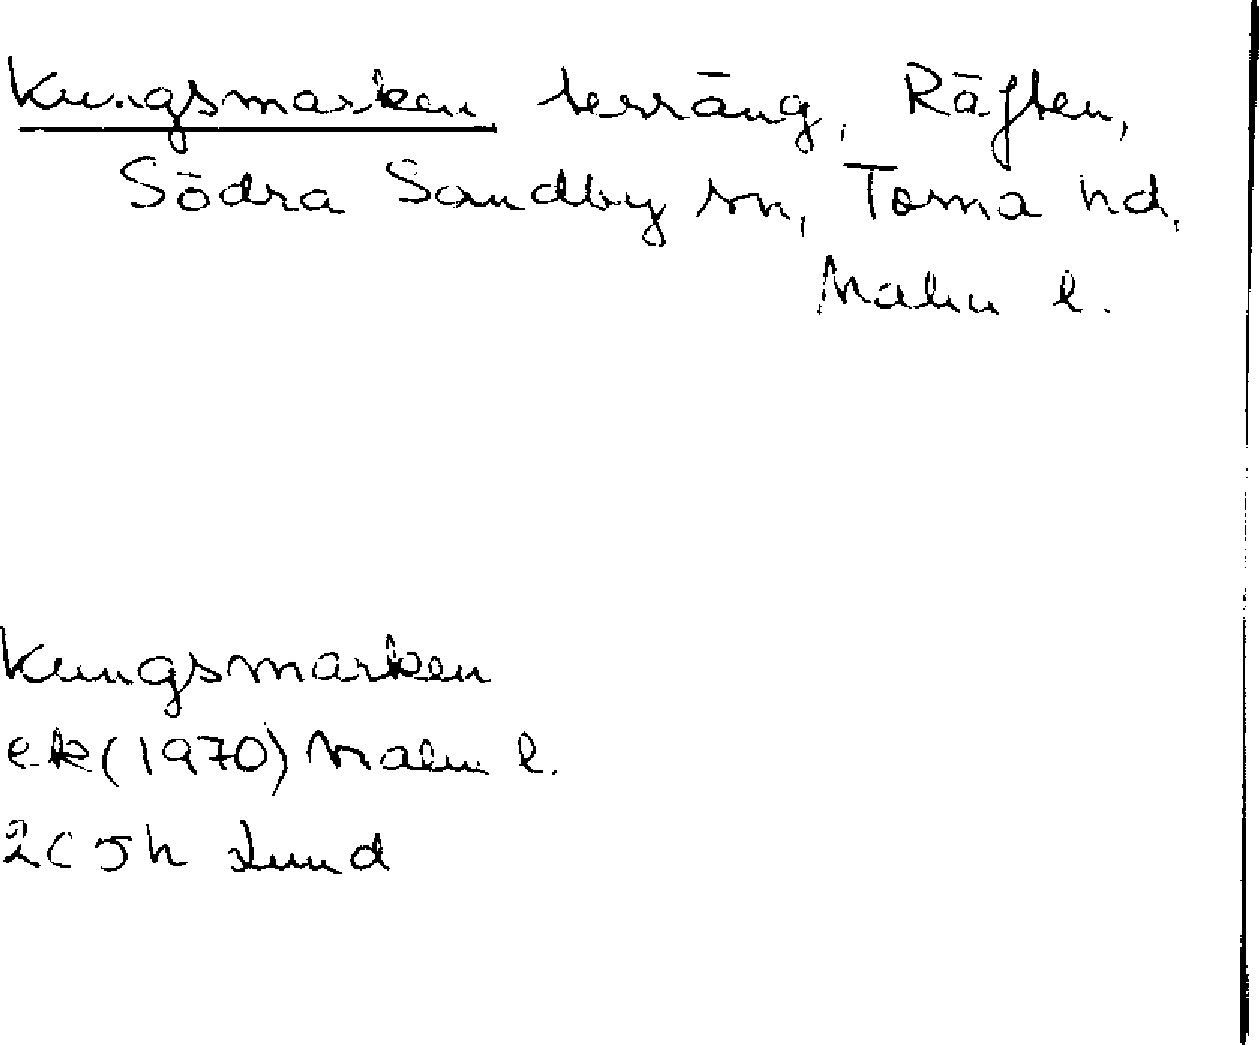 Kungsmarken terräng, Räften,
Södra Sandby sn, Torna hd,
Malm l.
Kungsmarken
ek (1970) Malm l.
2C 5h Lund